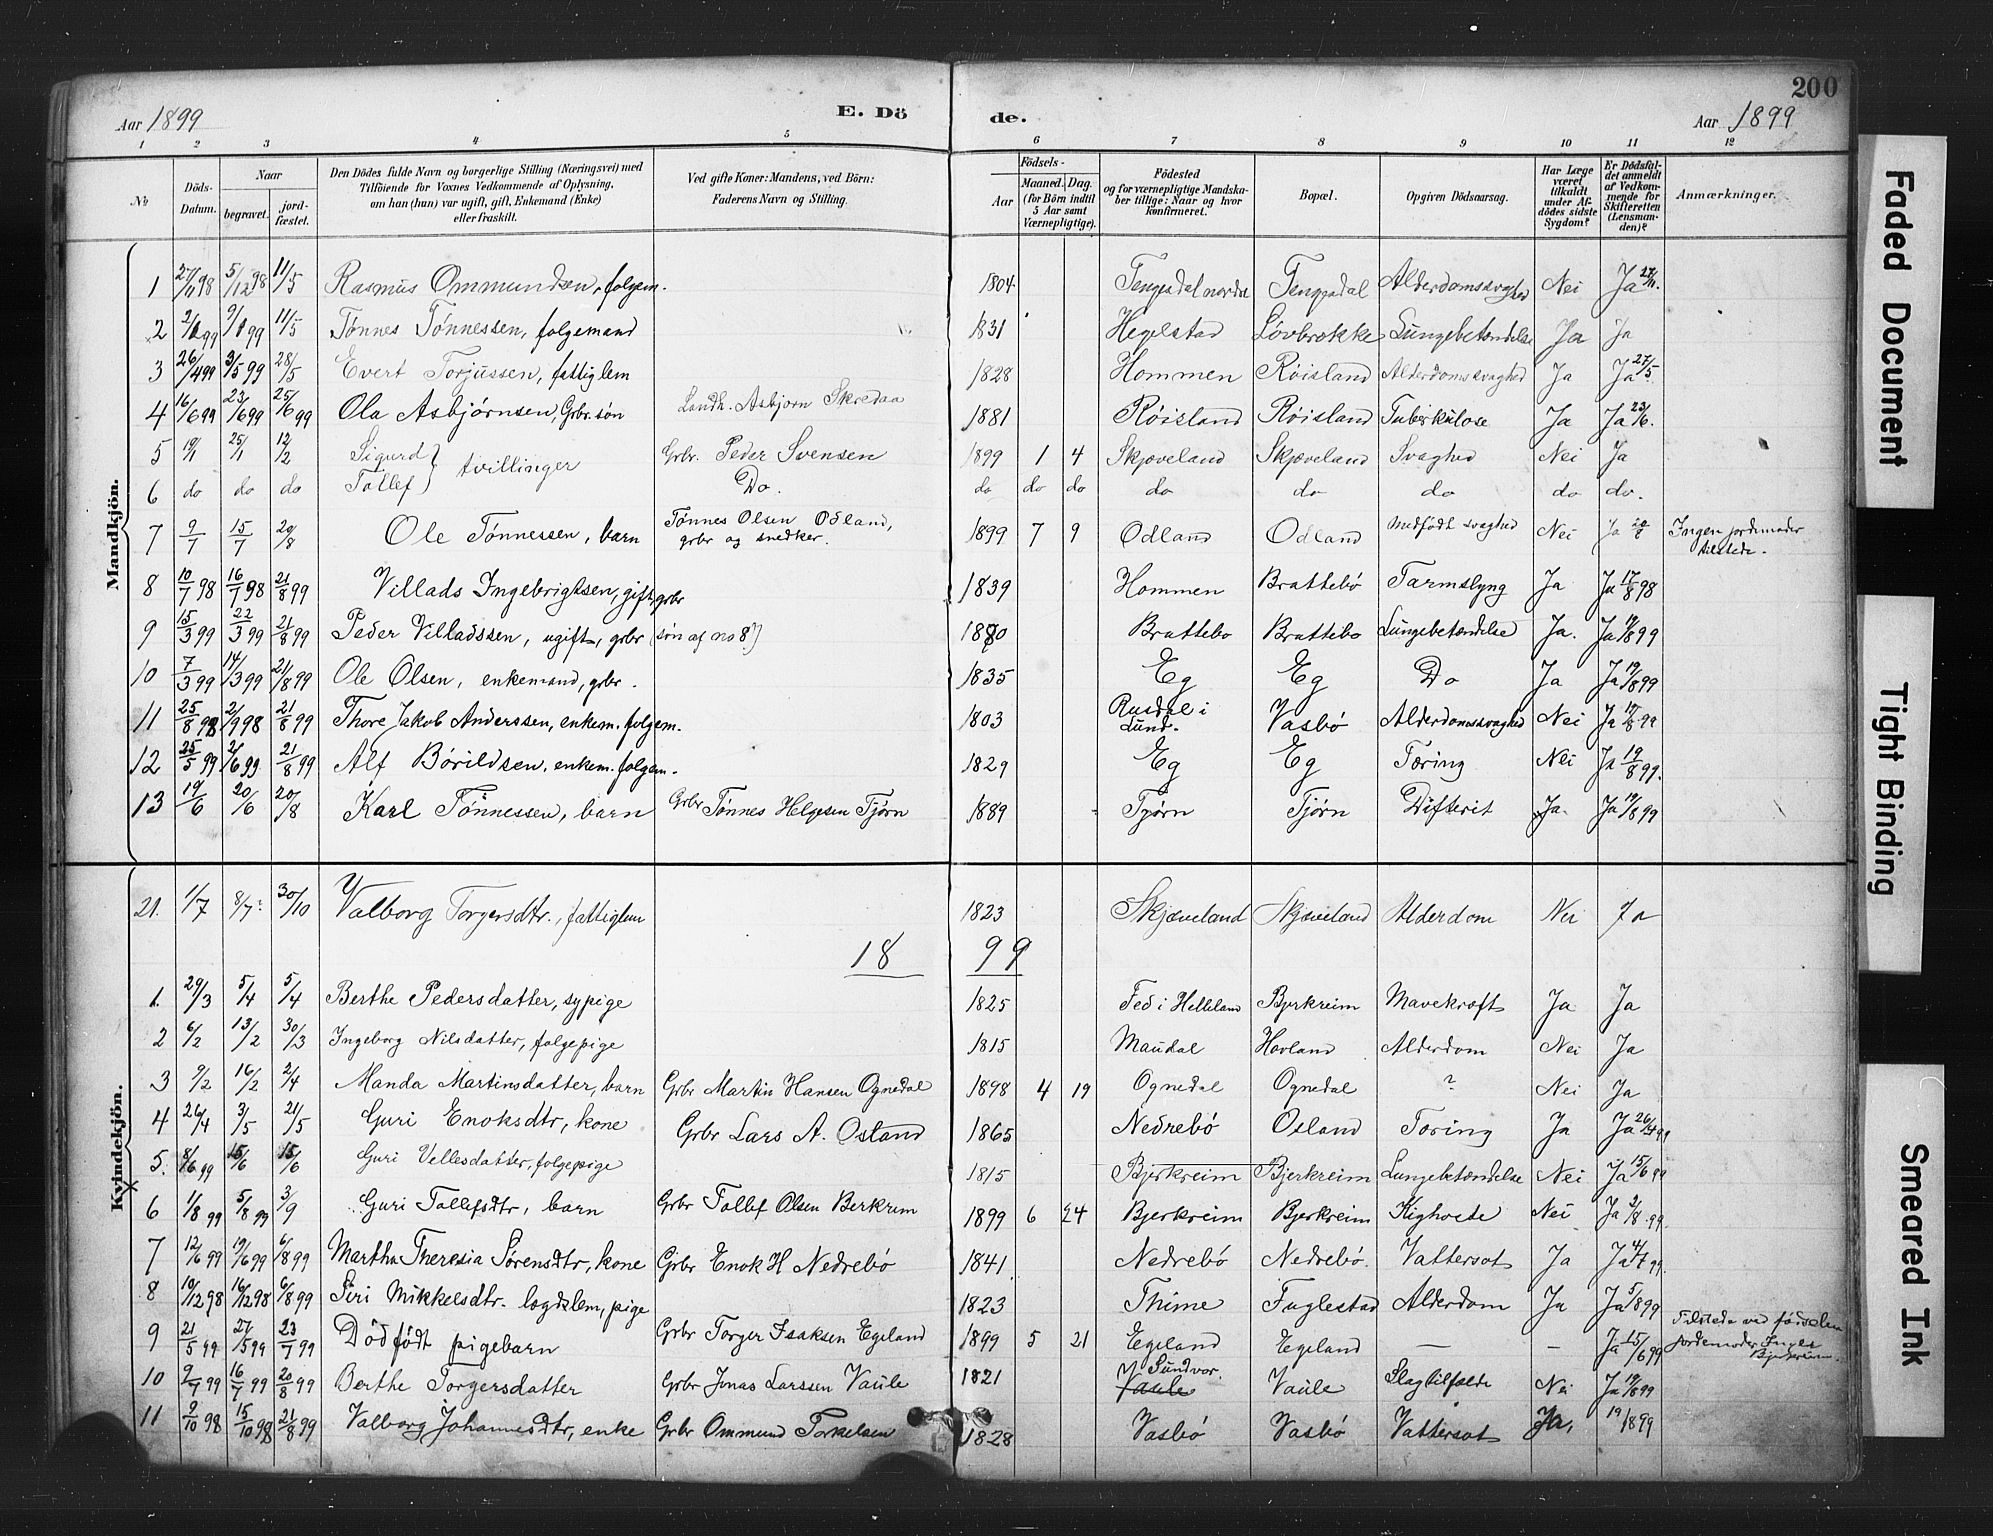 200
Aar 1899 E. Dö de. Aar 1899
1 2 3 4 5 6 7 8 9 10 11 12
№ Döds-Datum. Naar begravet. jord-fæstet. Den Dödes fulde Navn og borgerlige Stilling (Næringsvei) med Tilföiende for Voxnes Vedkommende af Oplysning, om han (hun) var ugift, gift, Enkemand (Enke) eller fraskilt. Ved gifte Koner: Mandens, ved Börn: Faderens Navn og Stilling. Födsels- Aar Maaned. Dag. (for Börn indtil 5 Aar samt Værnepligtige). Födested og for værnepligtige Mandskaber tillige: Naar og hvor konfirmeret. Bopæl. Opgiven Dödsaarsag. Har Læge været tilkaldt under Afdödes sidste Sygdom? Er Dödsfaldet anmeldt af Vedkommende for Skifteretten (Lensmanden)? Anmærkninger.
Mandkjön.
1 27/11 98 5/12 98 11/5 Rasmus Ommundsen, folgem. 1804 Tengesdal Alderdomssvaghed Nei Ja 27/11.
2 2/1 99 9/1 99 11/5 Tønnes Tønnessen, folgemand 1831 Hegelstad Løvbrekke Lungebetændelse Ja Ja
3 26/4 99 3/5 99 28/5 Evert Torjussen, fattiglem 1828 Hommen Røisland Alderdomssvaghed Ja Ja 27/5.
4 16/6 99 23/6 99 25/6 99 Ola Asbjørnsen, Grbr. søn Landh. Asbjørn Skredaa 1881 Røisland Røisland Tuberkulose Ja Ja 23/6.
5 19/1 25/1 12/2 Sigurd } tvillinger Grbr. Peder Svensen 1899 1 4 Skjæveland Skjæveland Svaghed Nei Ja
6 do do do Tollef } Do. do do do do do do do do.
7 9/7 15/7 20/8 Ole Tønnessen, barn Tønnes Olsen Odland, grbr og snedker. 1899 7 9 Odland Odland Medfødt svaghed Nei Ja 20/8 Ingen jordmoder tilstede.
8 10/7 98 16/7 98 21/8 99 Villads Ingebrigtsen, gift, grbr 1839 Hommen Brattebö Tarmslyng Ja Ja 17/8 98
9 15/3 99 22/3 99 21/8 99 Peder Villadssen, ugift, grbr (søn af no 8!) 1880 Brattebo Brattebo Lungebetændelse Ja. Ja 19/8 99
10 7/3 99 14/3 99 21/8 99 Ole Olsen, enkemand, grbr. 1835 Eg Eg Do Ja Ja 19/8 99
11 25/8 98 2/9 98 21/8 99 Thore Jakob Anderssen, enkem. folgem. 1803 Rusdal i Lund. Vasbø Alderdomssvaghed Nei Ja 19/8 99
12 25/5 99 2/6 99 21/8 99 Alf Börildsen, enkem. folgem. 1829 Eg Eg Tæring Nei Ja 19/8 99.
13 19/6 20/6 20/8 Karl Tønnessen, barn Grbr Tønnes Helgesen Tjørn 1889 Tjørn Tjørn Difterit Ja. Ja 19/8 99
Kvindekjön.
21. 1/7 8/7 30/10 Valborg Torgersdtr., fattiglem 1823 Skjæveland Skjæveland Alderdom Nei Ja
18 99
1. 29/3 5/4 5/4 Berthe Pedersdatter, sypige 1825 Fed i Helleland Bjerkreim Mavekræft Ja Ja
2 6/2 13/2 30/3 Ingeborg Nilsdatter, folgepige 1815 Maudal Hovland Alderdom Nei Ja
3 9/2 16/2 2/4 Manda Martinsdatter, barn Grbr Martin Hansen Ognedal 1898 4 19 Ognedal Ognedal ? Nei Ja
4 26/4 3/5 21/5 Guri Enoksdtr, kone Grbr Lars A. Osland 1865 Nedrebö Osland Tæring Ja Ja 26/4 99
5. 8/6 99 15/6 15/6 Guri Vellesdatter, folgepige 1815 Bjerkreim Bjerkreim Lungebetændelse Nei Ja 15/6 99
6 1/8 99 5/8 99 3/9 Guri Tollefsdtr, barn Grbr Tollef Olsen Berkrem 1899 6 24 Bjerkreim Bjerkreim Kighoste Nei Ja 2/8 99
7 12/6 99 19/6 99 6/8 99 Martha Theresia Sørensdtr, kone Grbr Enok H Nedrebö 1841 Nedrebö Nedrebö. Vattersot Ja Ja
8 10/12 98 16/12 98 6/8 99 Siri Mikkelsdtr. lægdslem, pige 1823 Thime Fuglestad Alderdom Ja Ja 5/8 99
9 21/5 99 27/5 99 23/7 99 Dödfødt pigebarn Grbr Torger Isaksen Egeland 1899 5 21 Egeland Egeland — — Ja 15/6 99 Tilstede ved fødselen jordemoder Inger Bjerkreim.
10 9/7 99 16/7 99 20/8 99 Berthe Torgersdatter Grbr Jonas Larssen Vaule 1821 V Sundvor. Vaule Slagtilfælde Nei Ja 19/8 99
11 9/10 98 15/10 98 21/8 99 Valborg Johannesdtr, enke Grbr Ommund Torkelsen 1828 Vasbö Vasbö Vattersot Ja, 19/8 99
Faded Document
Tight Binding
Smeared Ink